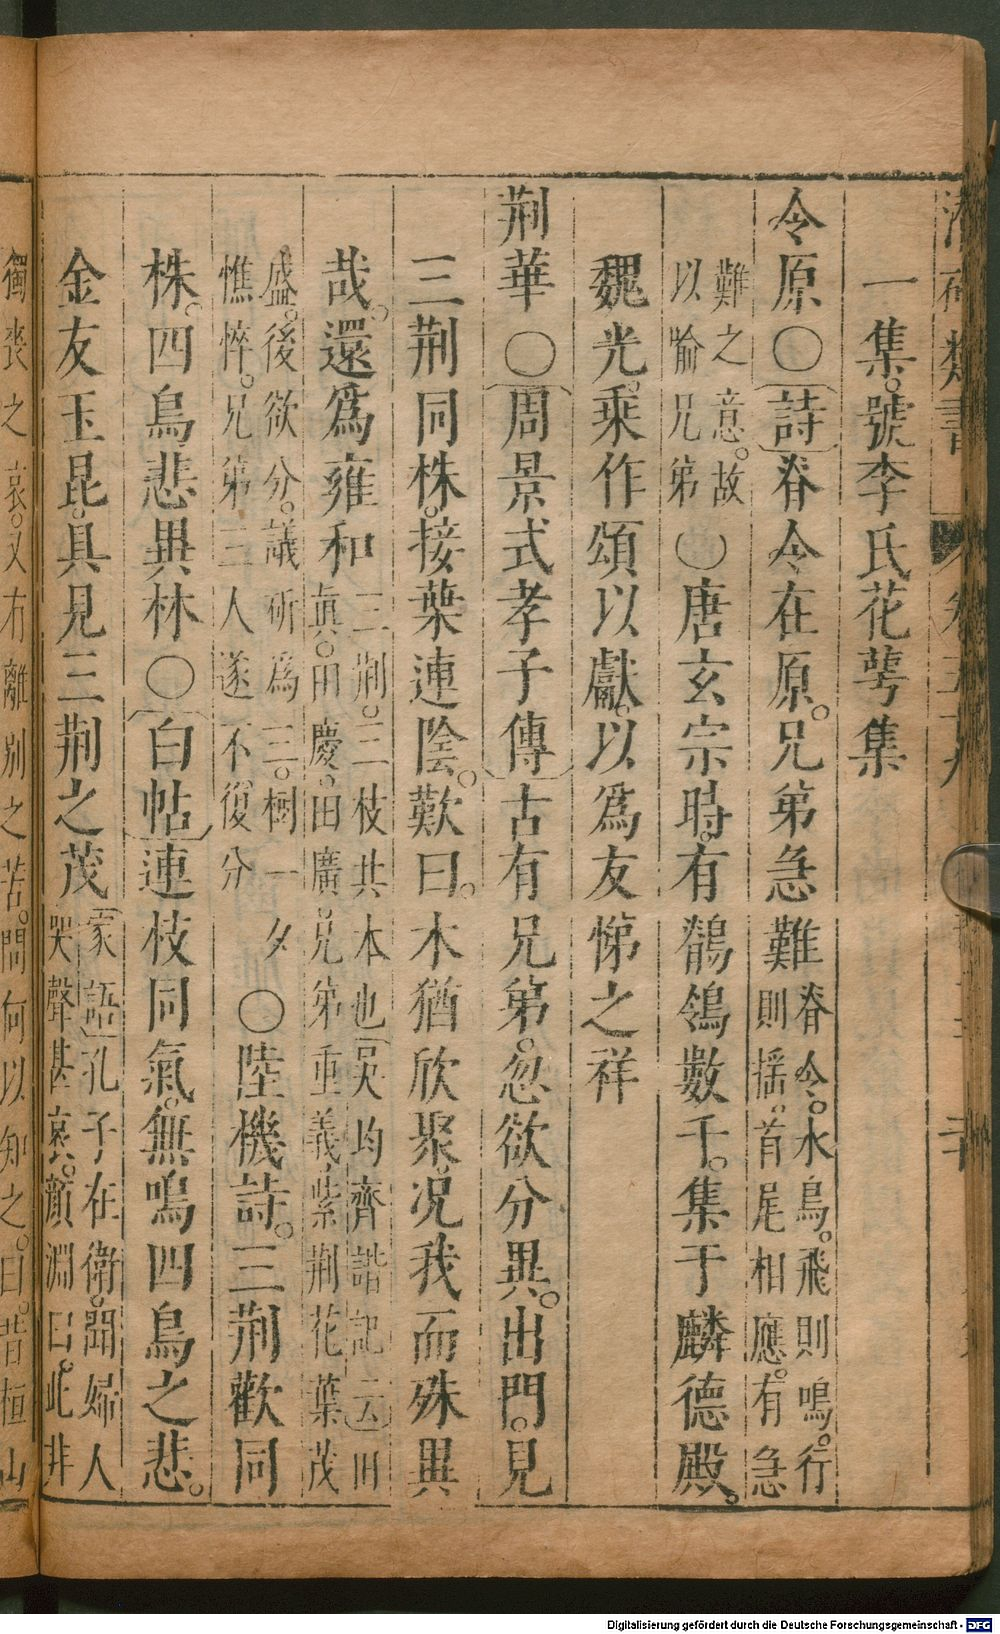 一集。號李氏花萼集
令原〇詩脊令在原。兄弟急難脊令。水鳥。飛則鳴。行則搖。首尾相應。有急
難之意。故以喻兄弟〇唐玄宗時。有鶺鴒數千。集于麟德殿。
魏光乘作頌以獻。以爲友悌之祥
荆華〇周景式孝子傳古有兄弟。忽欲分異。出門。見
三荆同株。接葉連陰。歎曰。木猶欣聚。况我而殊異
哉。還爲雍和三荆。三枝共本也吳均齊諧記云田真。田慶。田廣。兄弟重義。紫荆花葉茂
盛。後欲分。議斫爲三。樹一夕憔悴。兄弟三人遂不復分〇陸機詩。三荆歡同
株。四鳥悲異林〇白帖連枝同氣。無鳴四鳥之悲。
金友玉昆。具見三荆之茂家語孔子在衛。聞婦人哭聲甚哀。顏淵曰。此非
獨喪之哀。又有離別之苦。問何以知之。曰。昔桓山
Digitalisierung gefördert durch die Deutsche Forschungsgemeinschaft - DFG